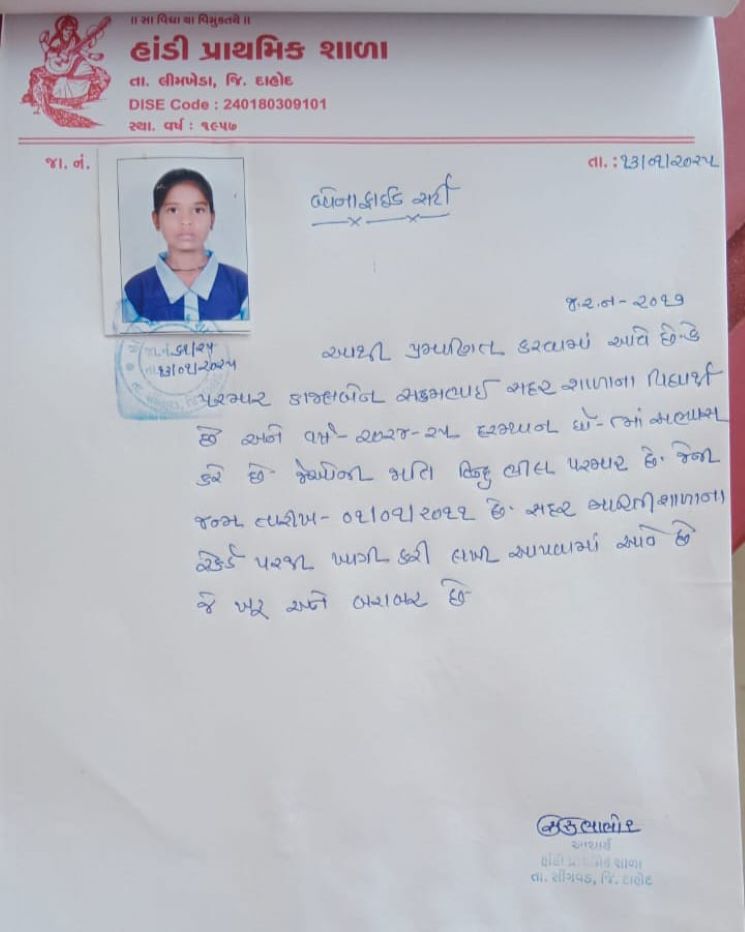 ॥ સા વિદ્યા યા વિમુક્તયે ॥
હાંડી પ્રાથમિક શાળા
તા. લીમખેડા, જિ. દાહોદ
DISE Code : 240180309101
સ્થા. વર્ષ : ૧૯૫૭
જા. નં.
તા. : ૧૩/૦૧/૨૦૨૫
બોનાફાઈડ સર્ટી
જ.ર.ન - ૨૦૧૭
તા ૧૩/૦૧/૨૦૨૫
આથી પ્રમાણિત કરવામાં આવે છે કે
પરમાર સદર શાળાના વિદ્યાર્થી
છે અને વર્ષ - ૨૦૨૪-૨૫ દરમ્યાન ધો - માં અભ્યાસ
કરે છે. જેઓની જાતિ હિન્દુ ભીલ પરમાર છે. જેની
જન્મ તારીખ - ૦૧/૦૧/૨૦૧૧ છે. સદર માહિતી શાળાના
રેકર્ડ પરથી ખાત્રી કરી લખી આપવામાં આવે છે
જે ખરૂ અને બરાબર છે
આચાર્ય
હાંડી પ્રાથમિક શાળા
તા. સીંગવડ, જિ. દાહોદ